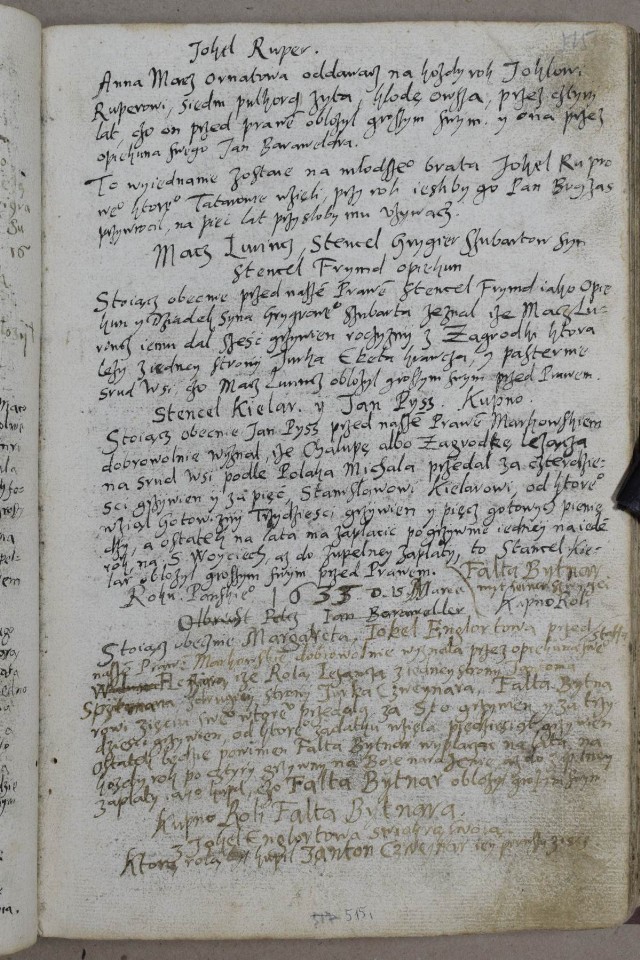 115
Johel Ruper.
Anna Macz ornatowa oddawacz na kożdy rok Johlowi
Ruperowi, siedm pułkorcy żyta, kłodę owsa, przez cztyry
lat, czo on przed prawē obłożył groszym swym. y ona przez
opiekuna swego Jan Barawellera.
To wyiednanie zostaie na młodszeo brata Johel Rupro
weo ktorego Tatarowie wzieli, przy roli iesliby go Pan Bog zas
przywrocił, na pieć lat przysłoby mu używacz.
Macz Lurincz, Stencel Grygier Szubartow syn
Stencel Frymd opiekun
Stoiącz obecnie przed naszē Prawē Stencel Frymd iako Opie
kun y Dziadek syna Grygroweo Szubarta zeznał iże Macz Lu-
rincz iemu dał szesć grzywien z Zagrodki ktora
leży z iedney strony Jurka Eketa y pasternie
srud wsi, czo Macz Lurincz obłożył groszym swym przed Prawem.
Stencel Kielar. y Jan Pysz. Kupno.
Stoiącz obecnie Jan Pysz przed naszē Prawē Markowskiem
dobrowolnie wyznał, iże Chałupę albo Zagrodkę leżącza
na srud wsi podle Polaka Michala przedał za czterdzie-
sci grzywien y za pięc, Stanisławowi Kielarowi, od ktoreo
wziął gotowizny Trzydziesci grzywien y pięcz gotowych pienię
dzy, a ostatek na lata ma zapłacic po grzywnie iedney na iedē
rok, na S. Woyciech, aż do zupełney zapłaty, to Stancel Kie-
lar obłożył groszym swym przed Prawem.
Roku Panskieo 1633 D. 15 Marca
Falta Bytnar
Kupno Roli
Olbricht Pelcz Jan Baraweller
Stoiącz obecnie Margareta, Johel Englortowa przed
naszē Prawē Markowskiē dobrowolnie wyznała przez opiekuna swe
iże Rolą Leżącza z iedney strony Jantona
Szpytmara z drugiey strony Jurka Czweynara, Falta Bytna
rowi zięciu sweo wtoreo przedała za Sto grzywien y za trzy
dziesci grzywien, od ktoreo zadatku wzięła piędziesiąt grzywien
Ostatek będzie powinien Falta Bytnar wypłacac na lata, na
kożdy rok po cztyry grzywny na Boże narodzenie aż do zupełney
zapłaty iako kupił, czo Falta Bytnar obłożył groszym swym
Kupno Roli Falta Bytnara,
z Johel Englortowa swiekrą swoią.
Ktorą rolą kupił Janton Czweynar
515